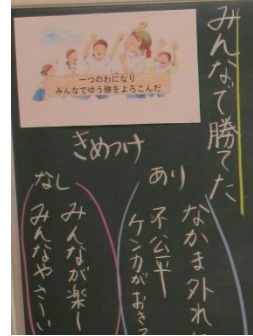 みんなで勝てた
一つのわになり
みんなでゆう勝をよろこんだ
きめつけ
あり
なかま外れ
不公平
ケンカがおき
なし
みんなが楽し
みんなやさしい